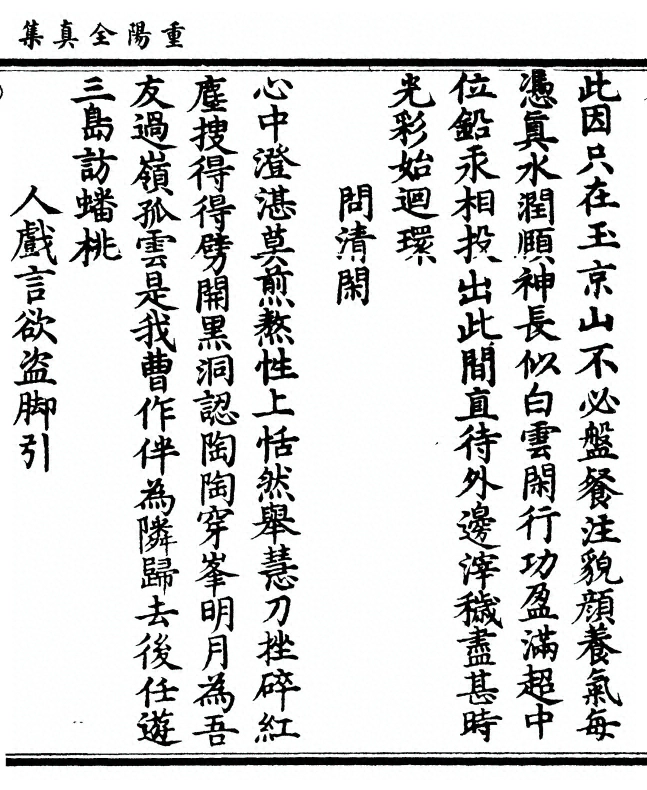 重陽全真集
此因只在玉京山不必盤餐注貌顏養氣每
憑真水潤頤神長似白雲閑行功盈滿超中
位鉛汞相投出此間直待外邊滓穢盡甚時
光彩始迴環
問清閑
心中澄湛莫煎熬性上恬然舉慧刀挫碎紅
塵搜得得劈開黑洞認陶陶穿峯明月為吾
友過嶺孤雲是我曹作伴為隣歸去後任遊
三島訪蟠桃
人戲言欲盜脚引